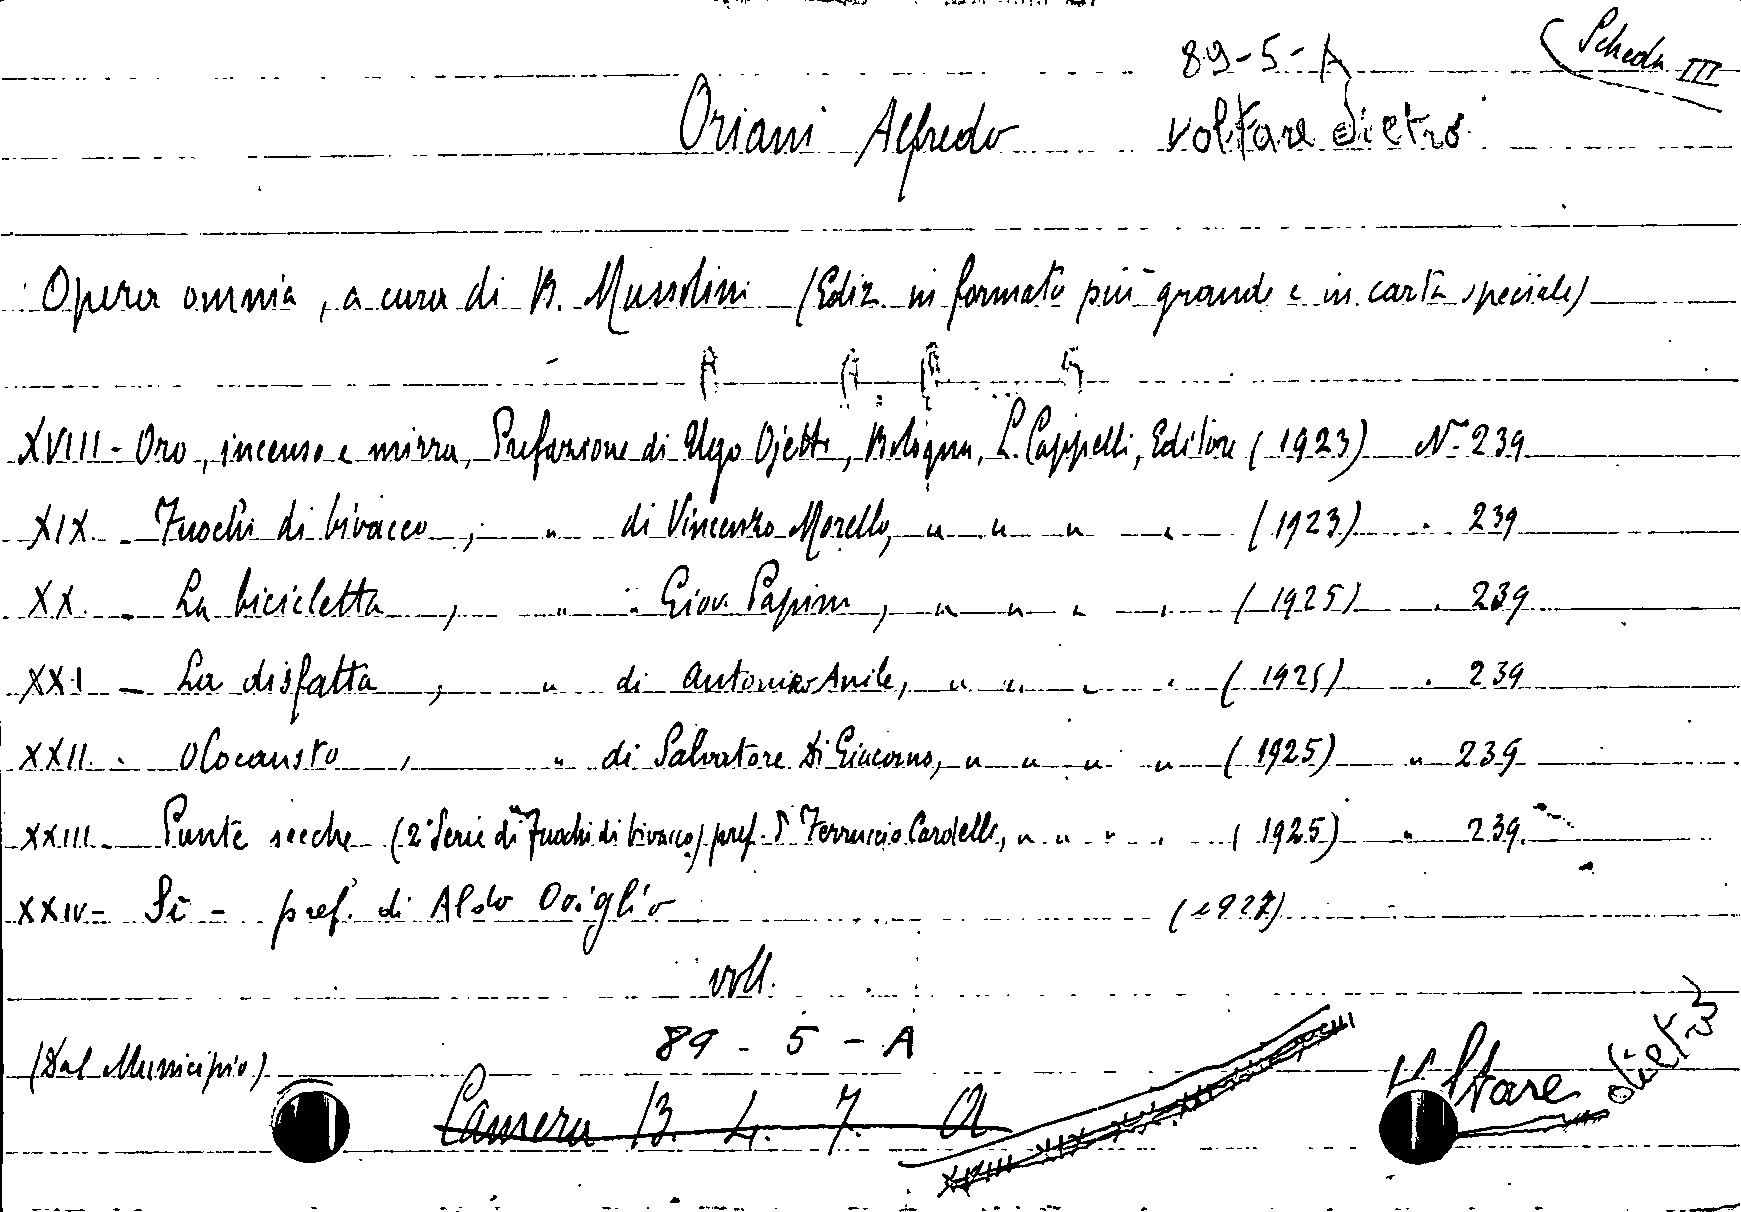 89-5-A (Scheda III
Oriani Alfredo voltare dietro
Opera omnia, a cura di B. Mussolini (Ediz. in formato più grande e in carta speciale)
XVIII - Oro, incenso e mirra, Prefazione di Ugo Ojetti, Bologna, L. Cappelli, Editore (1923) N° 239
XIX - Fuochi di bivacco, " di Vincenzo Morello, " " " " (1923) " 239
XX - La bicicletta, " " Giov. Papini, " " " " (1925) " 239
XXI - La disfatta, " di Antonino Anile, " " " " (1925) " 239
XXII - Olocausto, " di Salvatore Di Giacomo, " " " " (1925) " 239
XXIII - Punte secche (2ª Serie di "Fuochi di bivacco) pref. di Ferruccio Cardelli, " " " " (1925) " 239
XXIV - Sì - pref. di Aldo Oviglio (1927)
voll.
(Dal Municipio) 89 - 5 - A
Camera B. 4. 7. a
XVIII XIX
voltare dietro